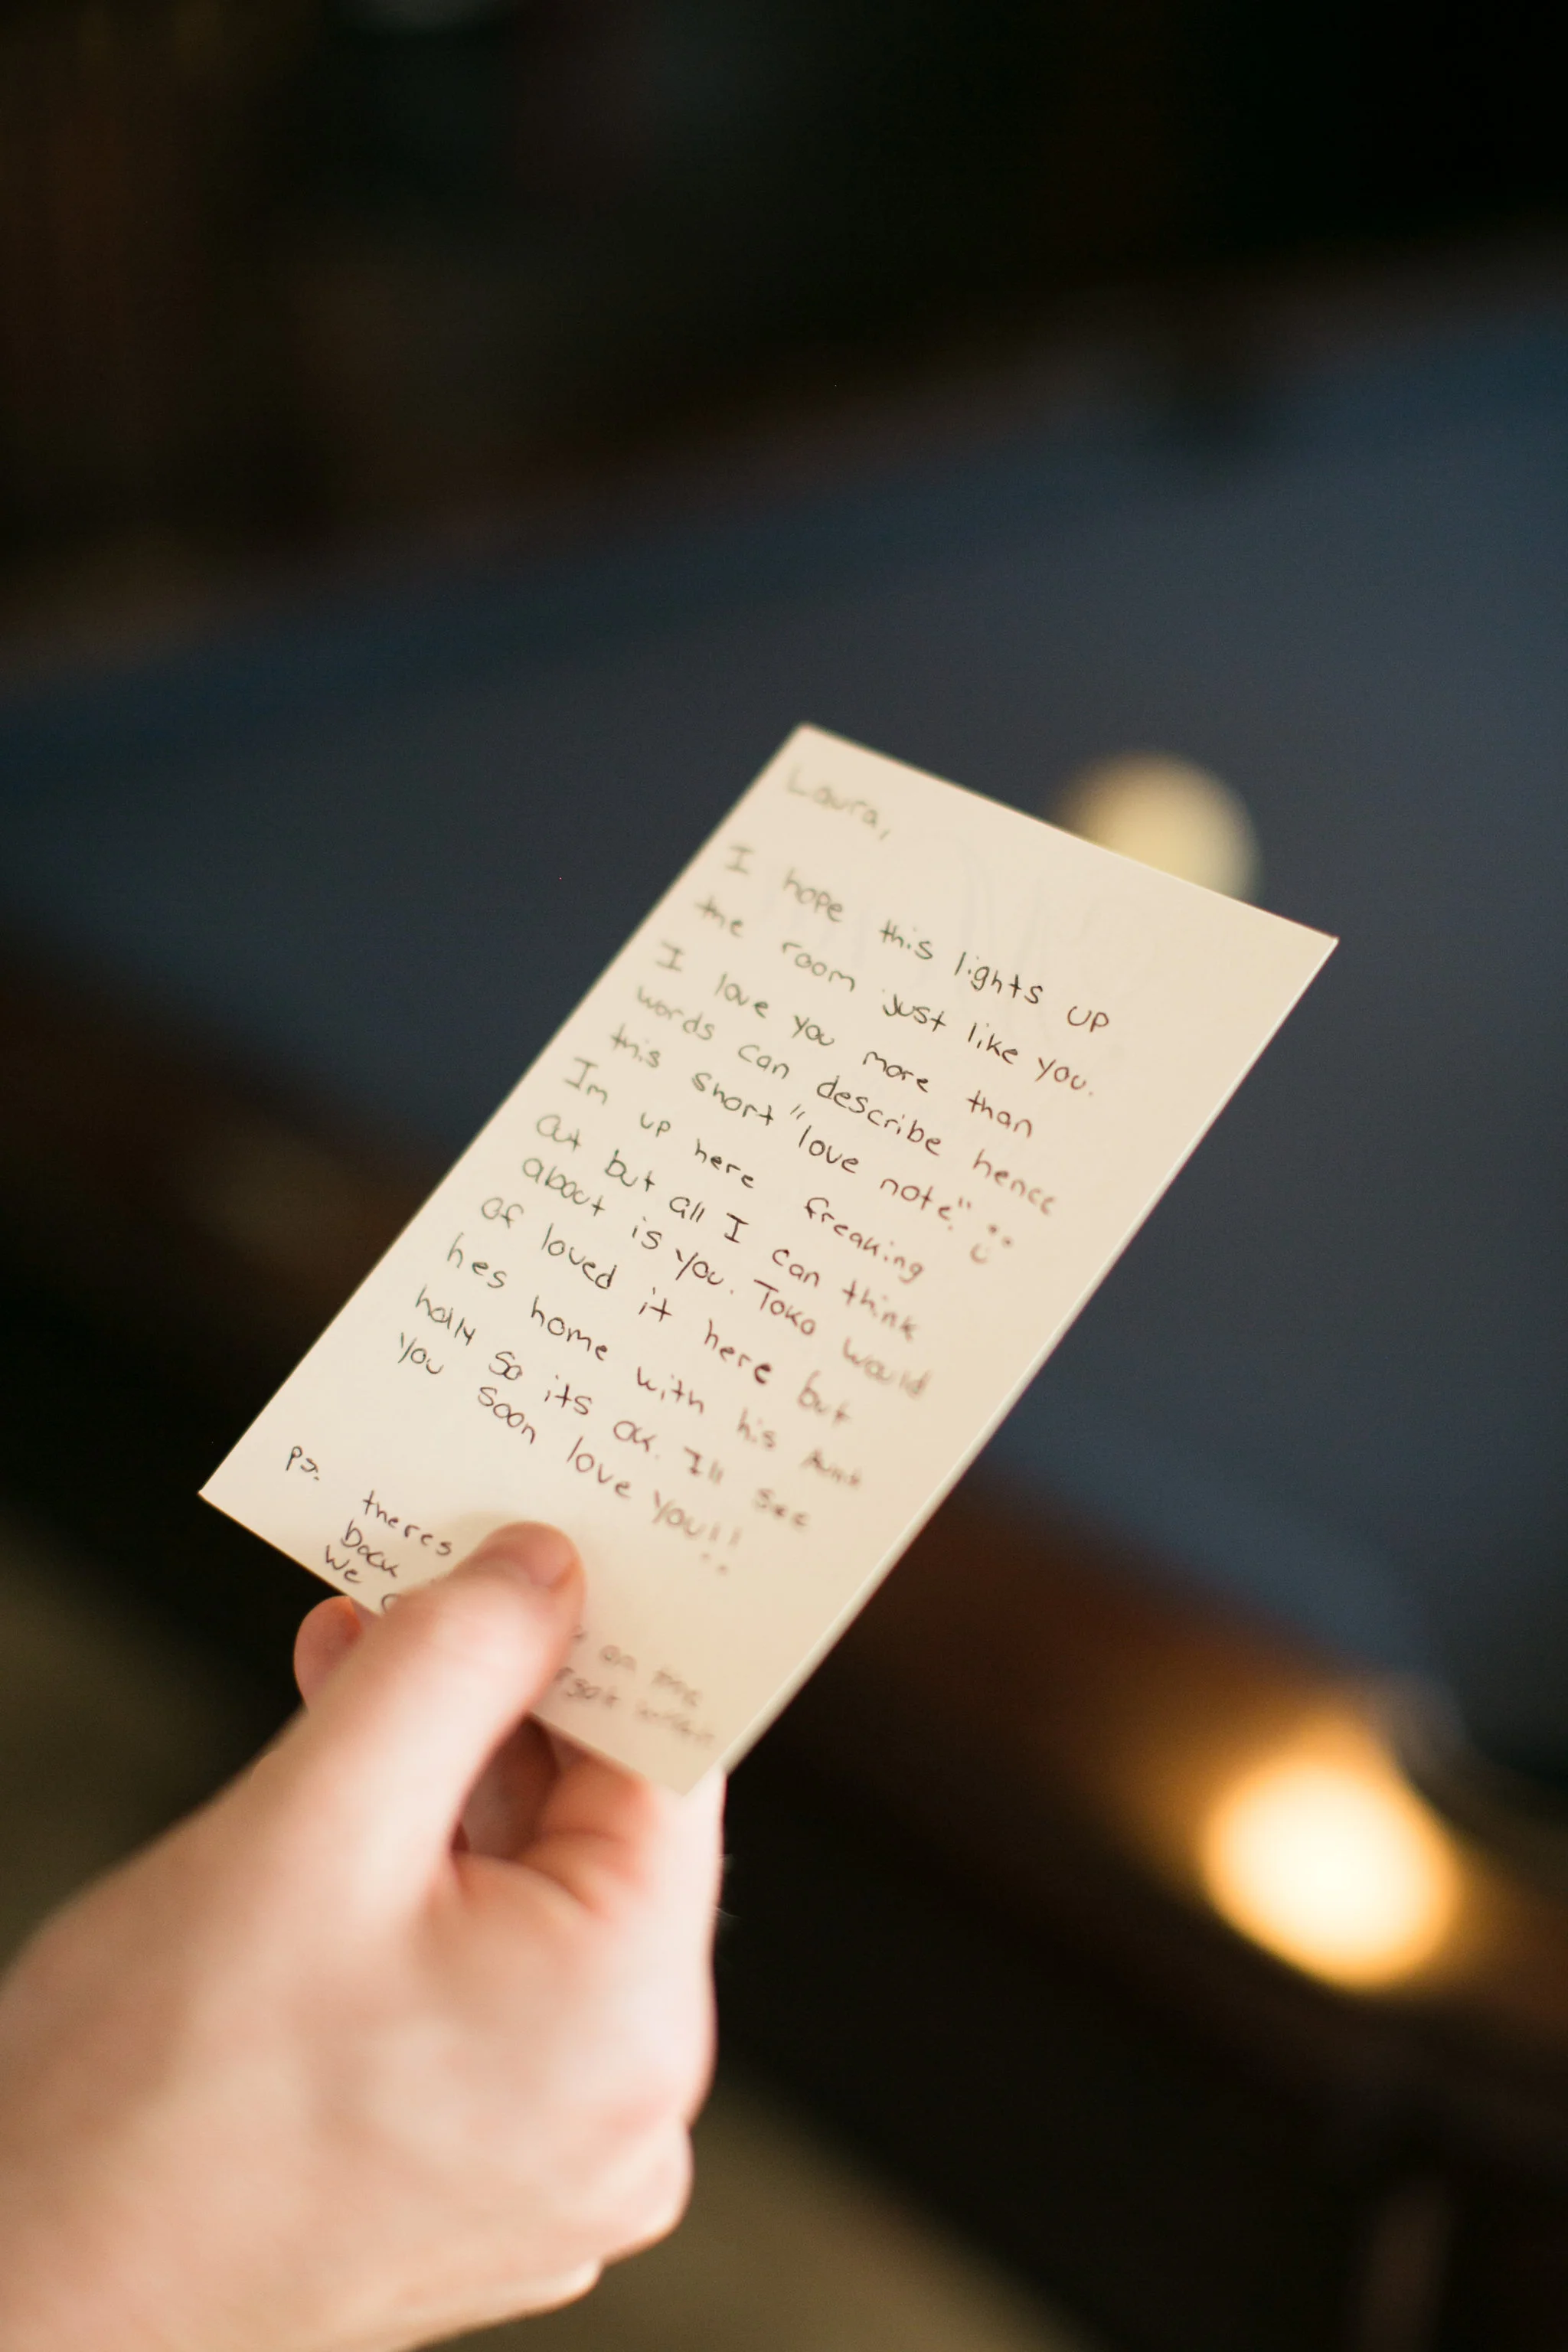 Laura,
I hope this lights up
the room just like you.
I love you more than
words can describe hence
this short "love note". :)
Im up here freaking
out but all I can think
about is you. Toko would
of loved it here but
hes home with his Aunt
holly so its ok. Ill see
you soon love you!!
Ps. theres on the
back
we